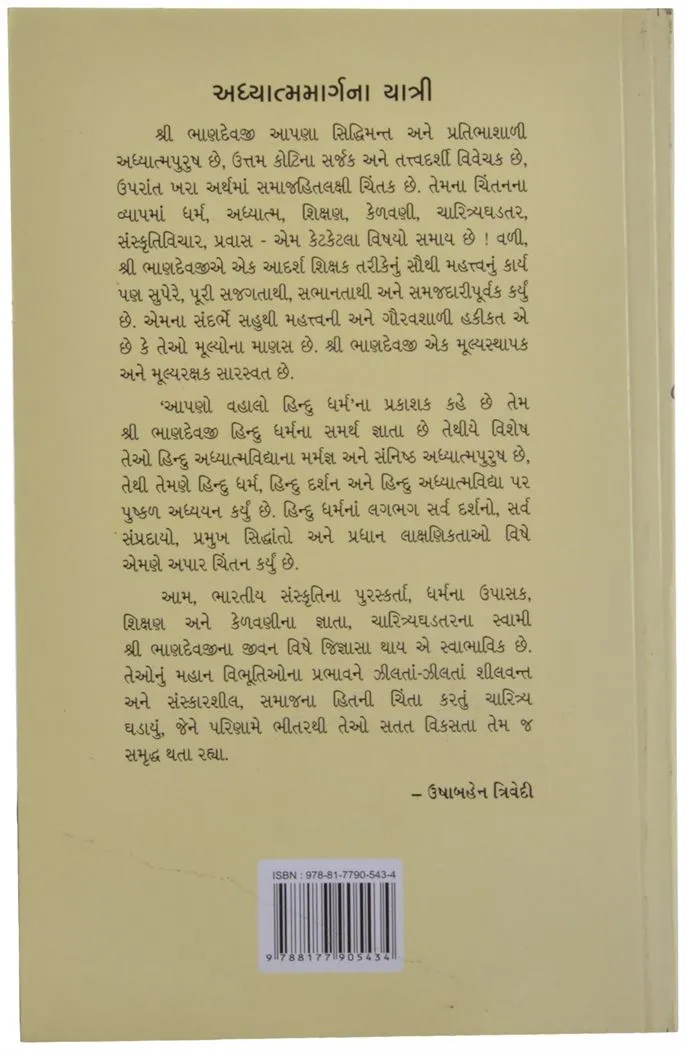 અધ્યાત્મમાર્ગના યાત્રી
શ્રી ભાણદેવજી આપણા સિદ્ધિમન્ત અને પ્રતિભાશાળી
અધ્યાત્મપુરુષ છે, ઉત્તમ કોટિના સર્જક અને તત્ત્વદર્શી વિવેચક છે,
ઉપરાંત ખરા અર્થમાં સમાજહિતલક્ષી ચિંતક છે. તેમના ચિંતનના
વ્યાપમાં ધર્મ, અધ્યાત્મ, શિક્ષણ, કેળવણી, ચારિત્ર્યઘડતર,
સંસ્કૃતિવિચાર, પ્રવાસ - એમ કેટકેટલા વિષયો સમાય છે ! વળી,
શ્રી ભાણદેવજીએ એક આદર્શ શિક્ષક તરીકેનું સૌથી મહત્ત્વનું કાર્ય
પણ સુપેરે, પૂરી સજગતાથી, સભાનતાથી અને સમજદારીપૂર્વક કર્યું
છે. એમના સંદર્ભે સહુથી મહત્ત્વની અને ગૌરવશાળી હકીકત એ
છે કે તેઓ મૂલ્યોના માણસ છે. શ્રી ભાણદેવજી એક મૂલ્યસ્થાપક
અને મૂલ્યરક્ષક સારસ્વત છે.
‘આપણો વહાલો હિન્દુ ધર્મ’ના પ્રકાશક કહે છે તેમ
શ્રી ભાણદેવજી હિન્દુ ધર્મના સમર્થ જ્ઞાતા છે તેથીયે વિશેષ
તેઓ હિન્દુ અધ્યાત્મવિદ્યાના મર્મજ્ઞ અને સંનિષ્ઠ અધ્યાત્મપુરુષ છે,
તેથી તેમણે હિન્દુ ધર્મ, હિન્દુ દર્શન અને હિન્દુ અધ્યાત્મવિદ્યા પર
પુષ્કળ અધ્યયન કર્યું છે. હિન્દુ ધર્મનાં લગભગ સર્વ દર્શનો, સર્વ
સંપ્રદાયો, પ્રમુખ સિદ્ધાંતો અને પ્રધાન લાક્ષણિકતાઓ વિષે
એમણે અપાર ચિંતન કર્યું છે.
આમ, ભારતીય સંસ્કૃતિના પુરસ્કર્તા, ધર્મના ઉપાસક,
શિક્ષણ અને કેળવણીના જ્ઞાતા, ચારિત્ર્યઘડતરના સ્વામી
શ્રી ભાણદેવજીના જીવન વિષે જિજ્ઞાસા થાય એ સ્વાભાવિક છે.
તેઓનું મહાન વિભૂતિઓના પ્રભાવને ઝીલતાં-ઝીલતાં શીલવન્ત
અને સંસ્કારશીલ, સમાજના હિતની ચિંતા કરતું ચારિત્ર્ય
ઘડાયું, જેને પરિણામે ભીતરથી તેઓ સતત વિકસતા તેમ જ
સમૃદ્ધ થતા રહ્યા.
– ઉષાબહેન ત્રિવેદી
ISBN : 978-81-7790-543-4
9 788177 905434